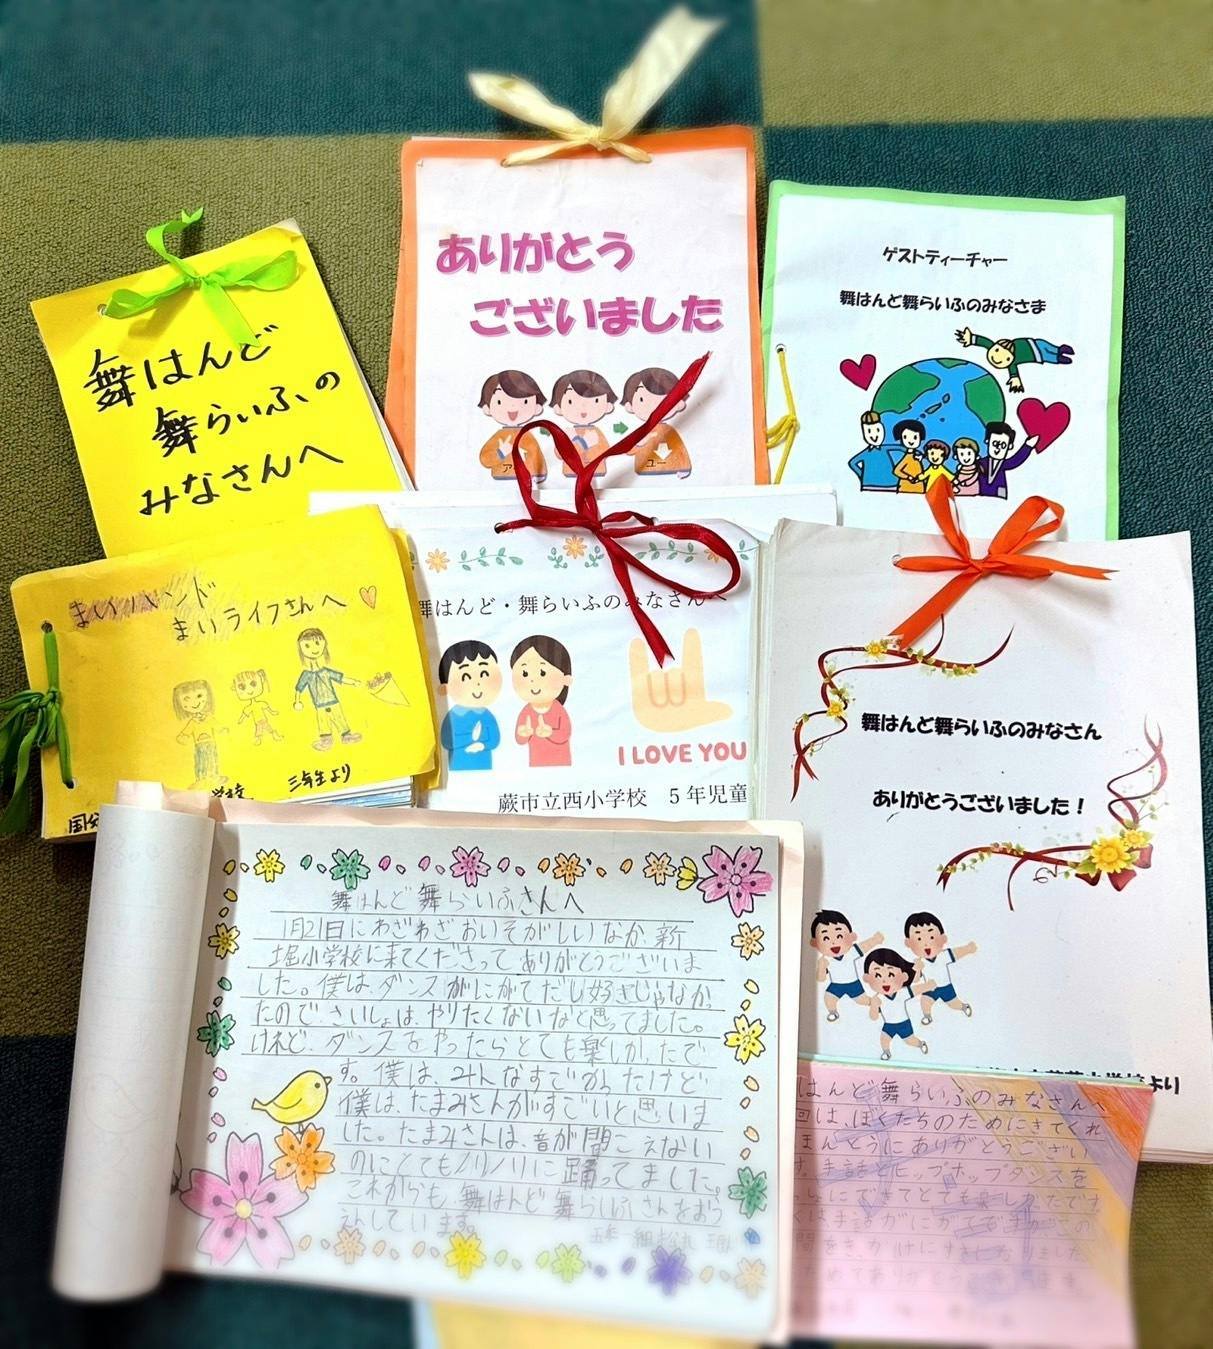 ありがとう
ございました
ゲストティーチャー
舞はんど舞らいふのみなさま
舞はんど
舞らいふの
みなさんへ
まいハンド
まいライフさんへ
三年生より
舞はんど・舞らいふのみなさんへ
I LOVE YOU
蕨市立西小学校 5年児童
舞はんど舞らいふのみなさん
ありがとうございました!
舞はんど舞らいふさんへ
1月21日にわざわざおいそがしいなか、新
堀小学校に来てくださってありがとうございま
した。僕は、ダンスがにがてだし好きじゃなか
たので、さいしょは、やりたくないなと思ってました。
けれど、ダンスをやったらとても楽しかたで
す。僕は、みんなすごかったけど
僕は、たまみさんがすごいと思いま
した。たまみさんは、音が聞こえない
のにとてもノリノリに踊ってました。
これからも舞はんど舞らいふさんをおう
えんしています。
はんど舞らいふのみなさんへ
回は、ぼくたちのためにきてくれ
ほんとうにありがとうござい
す。手話とヒップホップダンスを
しょにできてとても楽しかたです